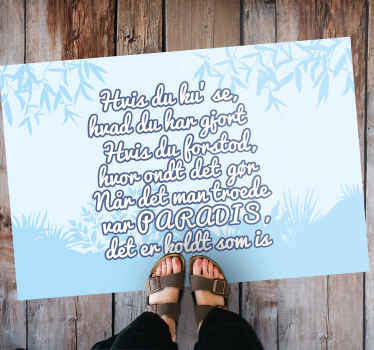 Hvis du ku' se,
hvad du har gjort
Hvis du forstod,
hvor ondt det gør
Når det man troede
var PARADIS,
det er koldt som is